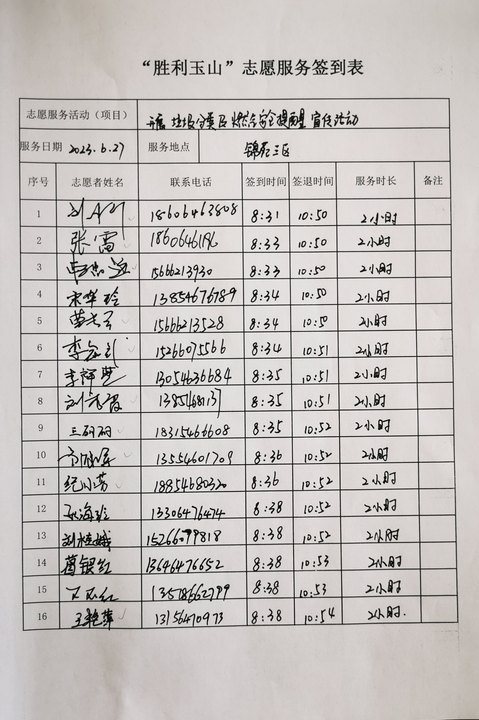 “胜利玉山”志愿服务签到表
志愿服务活动（项目） 开展垃圾分类及燃气安全提醒宣传活动
服务日期 2023.6.27 服务地点 锦苑三区
序号 志愿者姓名 联系电话 签到时间 签退时间 服务时长 备注
1 18606463808 8:31 10:50 2小时
2 张雷 8:33 10:50 2小时
3 15666213930 8:33 10:50 2小时
4 宋华玲 13854676789 8:34 10:50 2小时
5 15666213528 8:34 10:50 2小时
6 15266075566 8:34 10:51 2小时
7 13054636684 8:35 10:51 2小时
8 8:35 10:51 2小时
9 王丽丽 18315466608 8:35 10:52 2小时
10 13554601709 8:36 10:52 2小时
11 纪小芳 18854680320 8:36 10:52 2小时
12 13306476474 8:38 10:52 2小时
13 15266099818 8:38 10:52 2小时
14 葛银红 13646476652 8:38 10:53 2小时
15 8:38 10:53 2小时
16 王艳萍 8:38 10:54 2小时